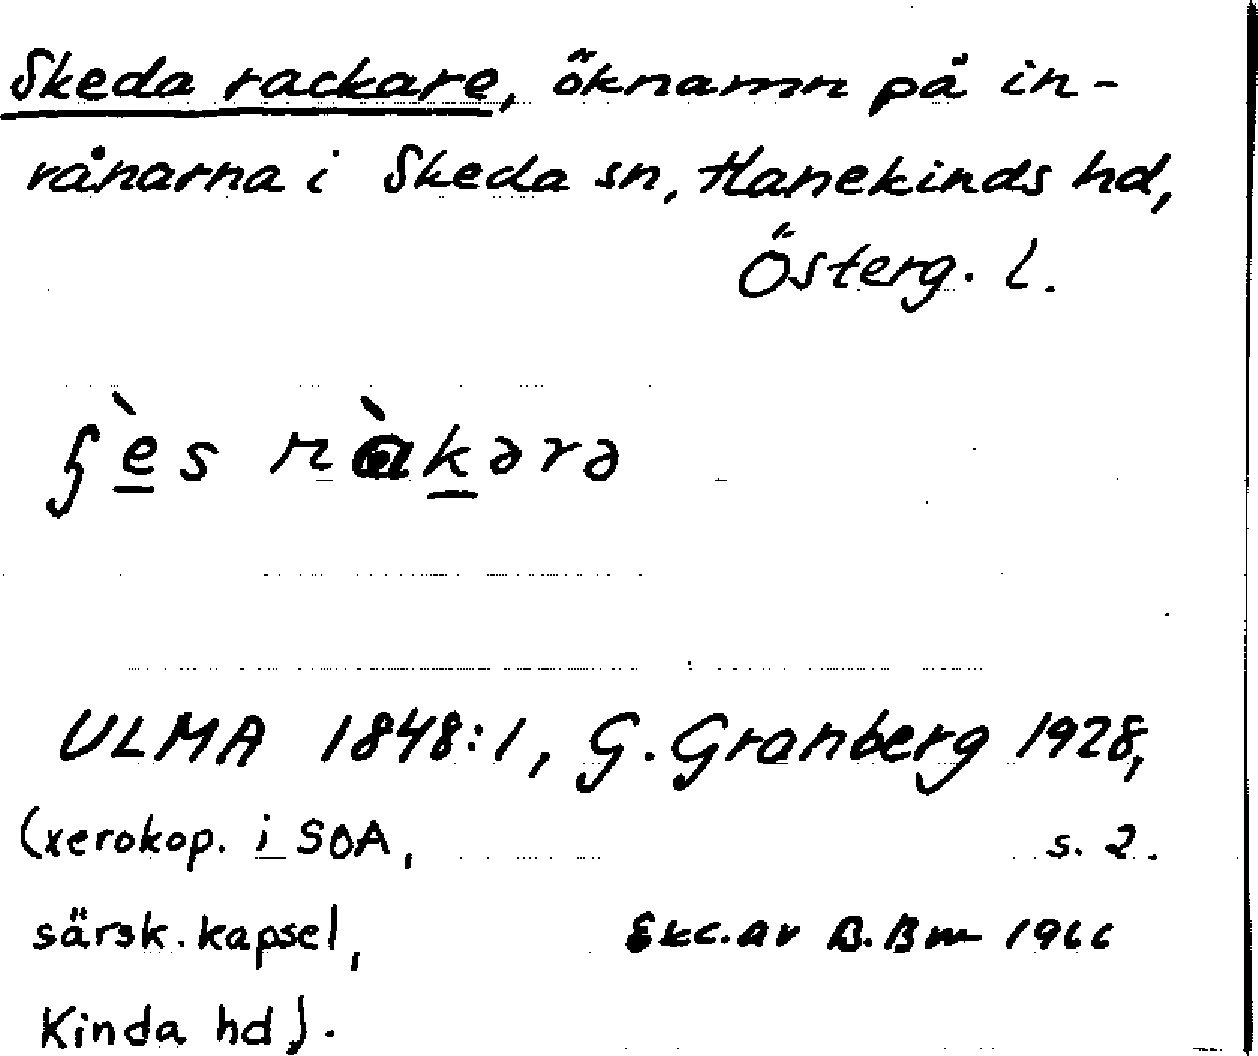 Skeda rackare, öknamn på in-
vånarna i Skeda sn, Hanekinds hd,
Österg. l.
ʃès ràkərə
ULMA 1848:1, G. Granberg 1928,
(xerokop. i SOA, s. 2.
särsk. kapsel, Exc. av B. Bm 1966
Kinda hd).